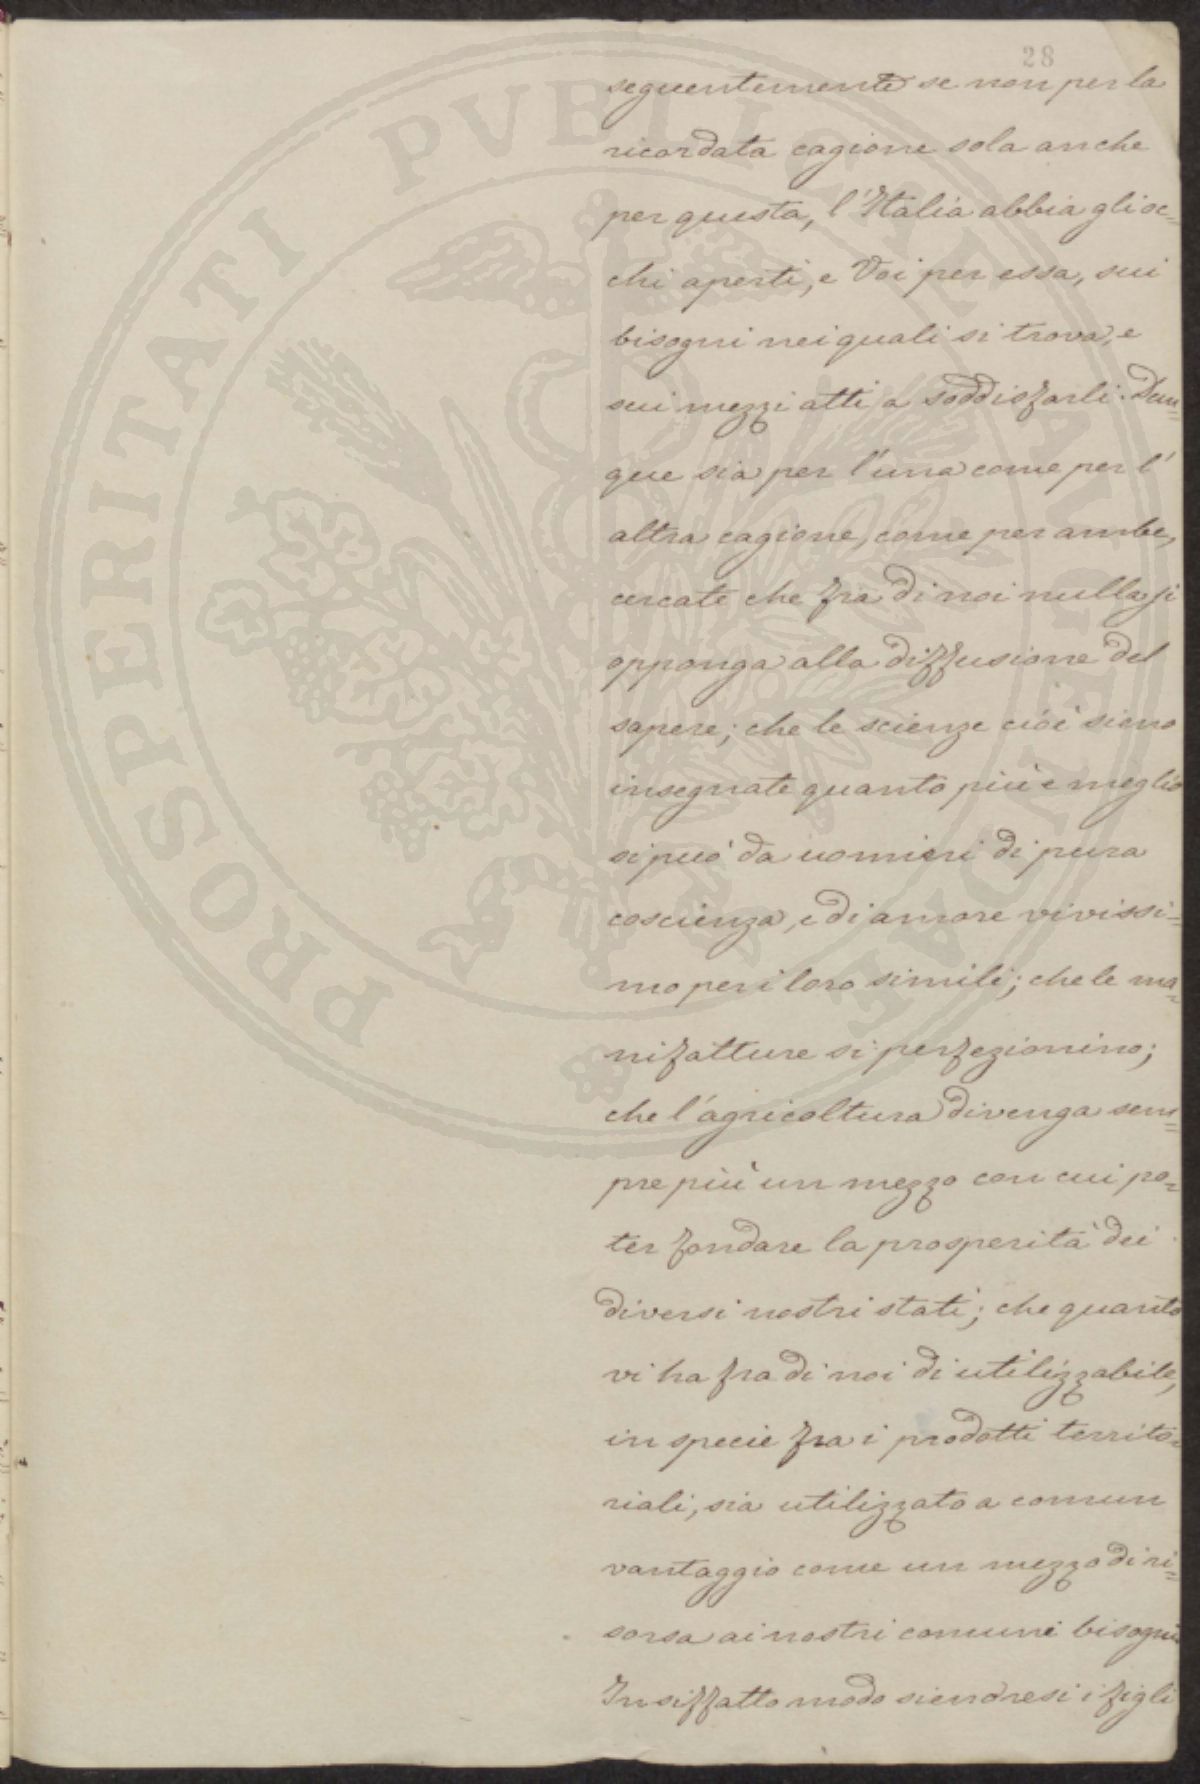 28
seguentemente se non per la
ricordata cagione sola anche
per questa, l'Italia abbia gli oc=
chi aperti, e Voi per essa, sui
bisogni nei quali si trova, e
sui mezzi atti a soddisfarli. Dun=
que sia per l'una come per l'
altra cagione, come per ambe,
cercate che fra di noi nulla si
opponga alla diffusione del
sapere; che le scienze cioè sieno
insegnate quanto più e meglio
si può da uomini di pura
coscienza, e di amore vivissi=
mo per i loro simili; che le ma=
nifatture si perfezionino;
che l'agricoltura divenga sem=
pre più un mezzo con cui po=
ter fondare la prosperità dei
diversi nostri stati; che quanto
vi ha fra di noi di utilizzabile,
in specie fra i prodotti territo=
riali, sia utilizzato a comun
vantaggio come un mezzo di ri=
sorsa ai nostri comuni bisogni
In siffatto modo sien resi i figli
PROSPERITATI PVBLICAE AVGENDAE